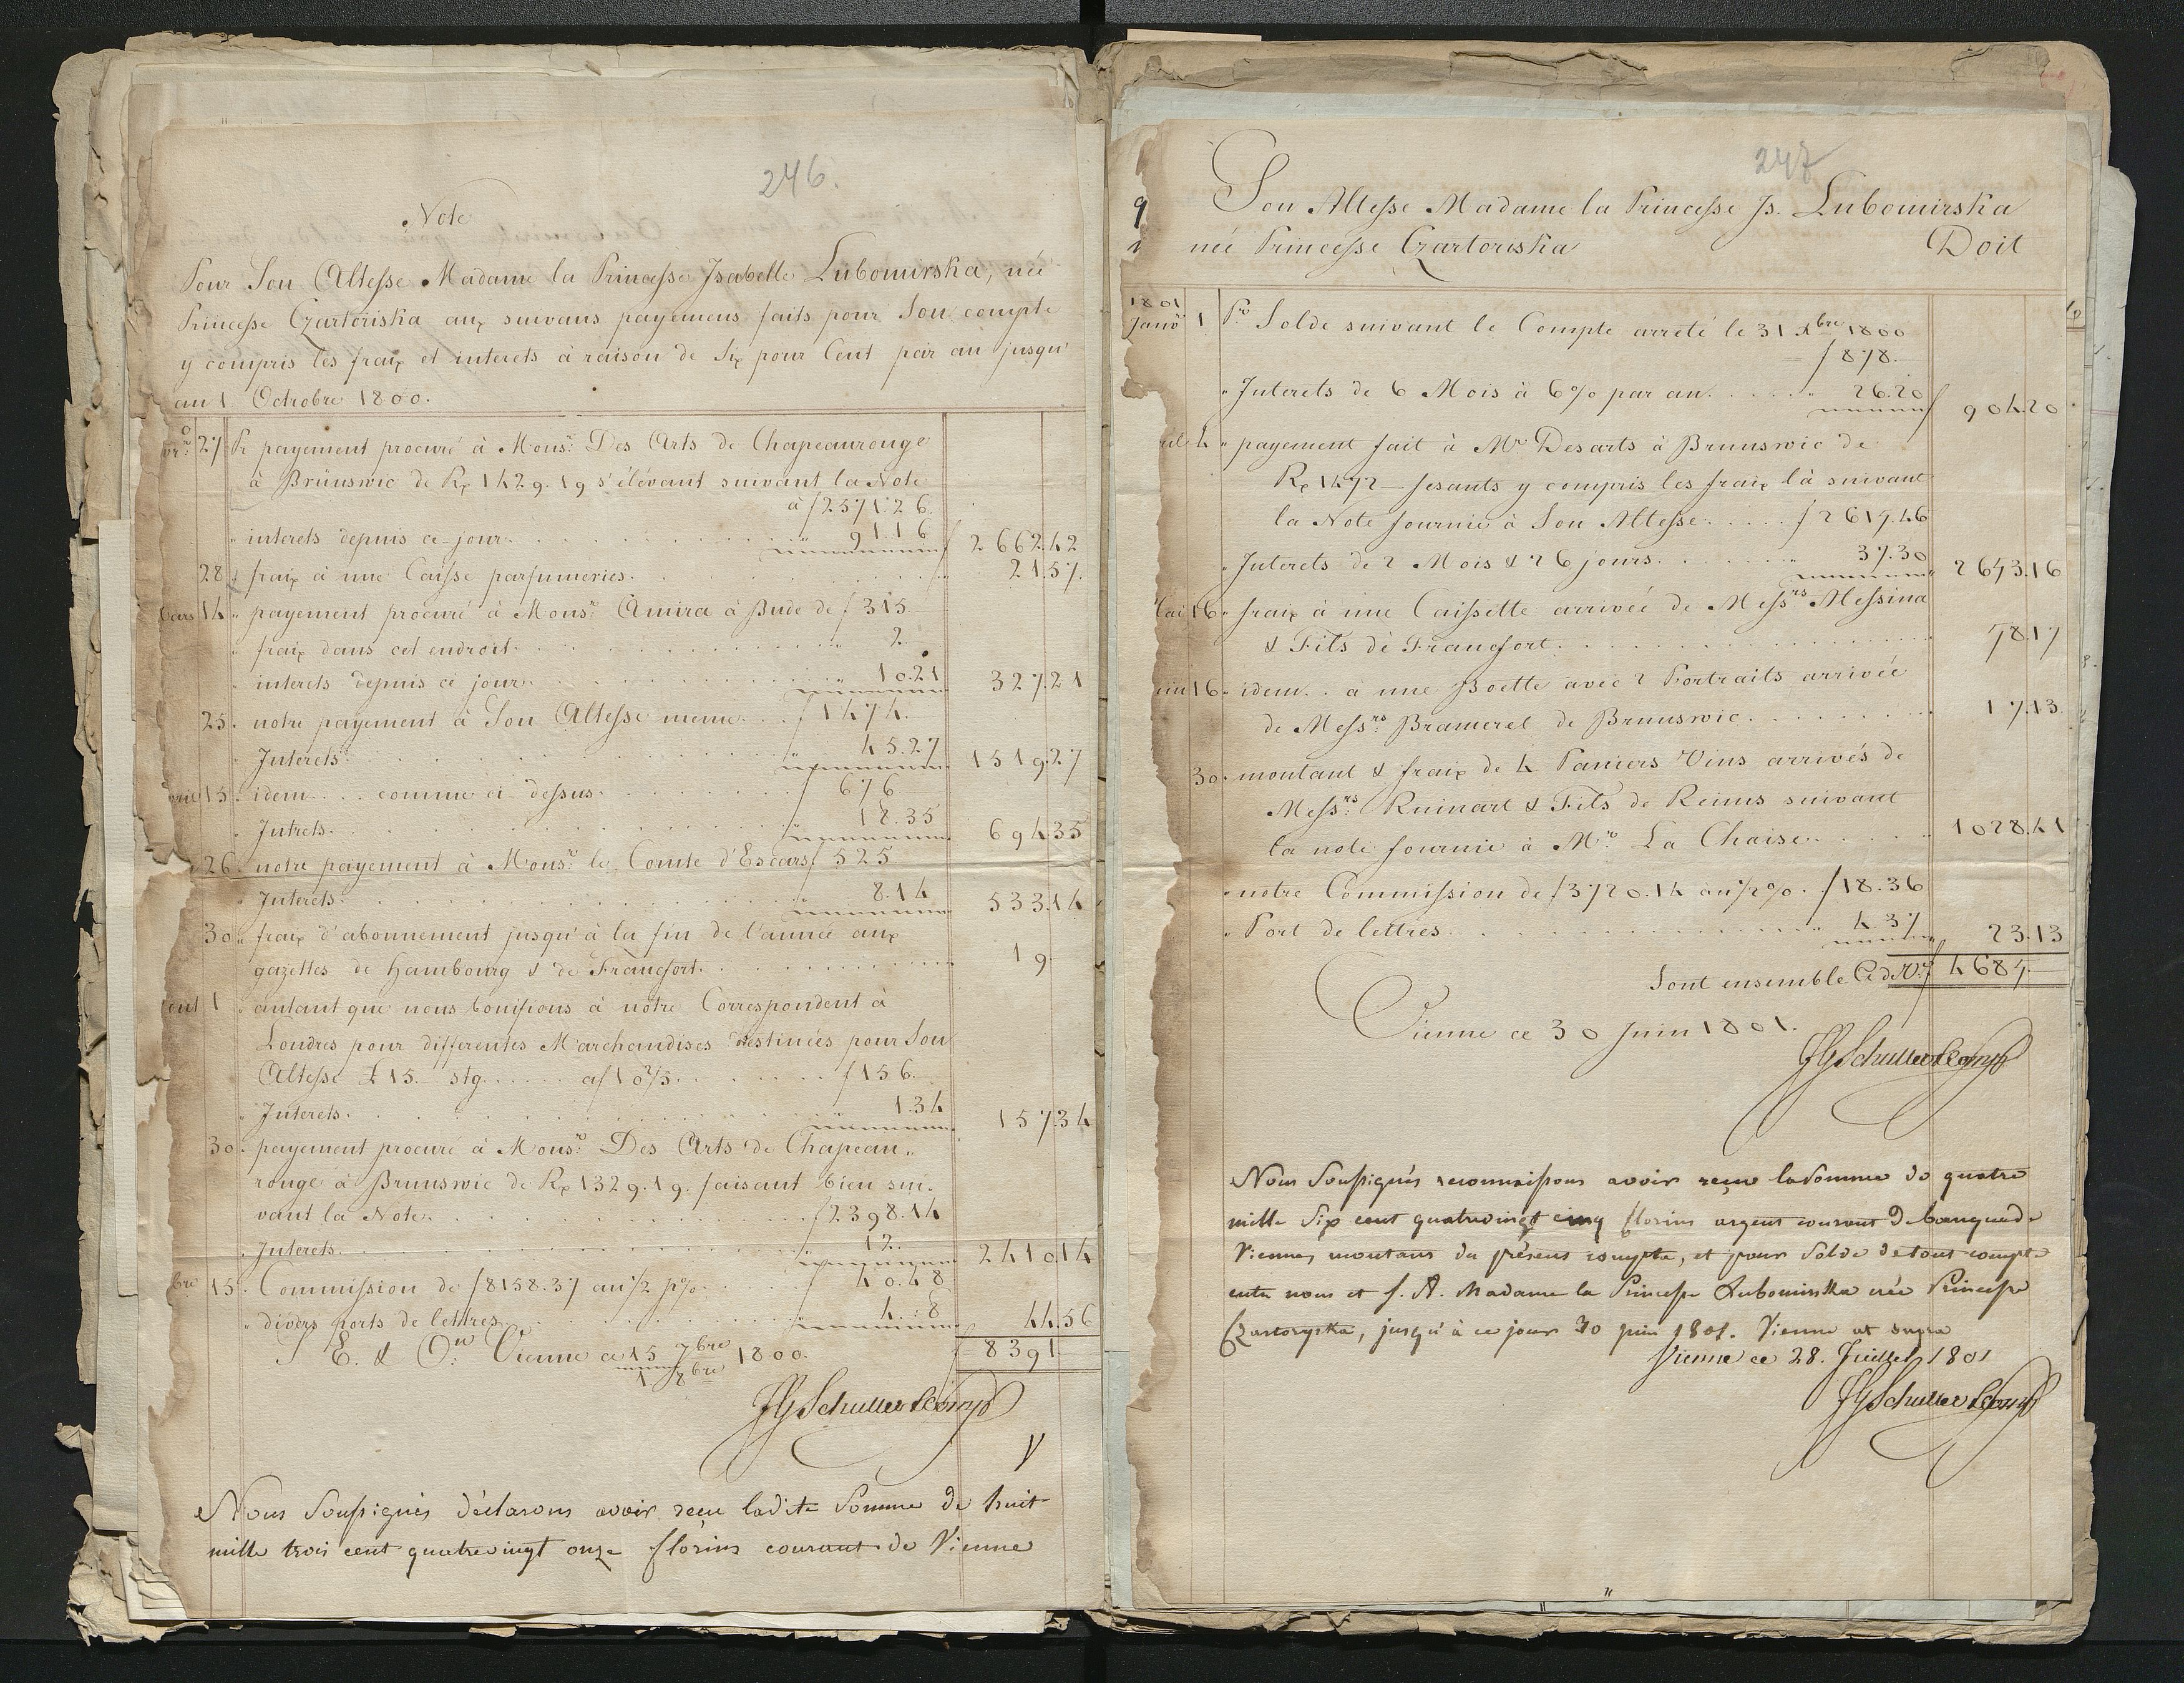 246.
Note
Pour Son Altesse Madame la Princesse Isabelle Lubomirska, née
Princesse Czartoriska aux suivans payemens faits pour Son compte
y compris les fraix et interets à raison de Six pour Cent par an jusqu'
au 1 Octobre 1800.
27 Pr payement procuré à Monsr. Des Arts de Chapeaurouge
à Brunswic de Rx 1429.19 s'élévant suivant la Note
à f 2571.26.
" interets depuis ce jour . . . " 91.16 f 2662.42
28 " fraix à une Caisse parfumeries . . . " 21.57.
14 " payement procuré à Monsr. Amira à Bude de f 315
" fraix dans cet endroit . . . " 2
" interets depuis ce jour . . . " 10.21 327.21
25 " notre payement à Son Altesse meme . . f 1474.
" Interets . . . " 45.27 1519.27
15 " idem . . . comme ci dessus . . . f 676
" Intrets . . . " 18.35 694.35
26 " notre payement à Monsr. le Comte d'Escars f 525
" Interets . . . " 8.14 533.14
30 " fraix d'abonnement jusqu'à la fin de l'année aux
gazettes de Hambourg & de Francfort . . . 19
1 " autant que nous bonifions à notre Correspondent à
Londres pour differentes Marchandises destinées pour Son
Altesse £ 15 stg . . . . a f 10 2/5 . . . f 156.
" Interets . . . " 1.34 157.34
30 " payement procuré à Monsr. Des Arts de Chapeau"
rouge à Brunswic de Rx 1329.19. faisant bien sui-
vant la Note . . . f 2398.14
" Interets . . . " 12. 2410.14
bre 15 " Commission de f 8158.37 au 1/2 p% . . f 40.48
" divers ports de lettres . . . " 4.:8 44.56
S E. & On. Vienne ce 15 7bre 1800. f 8391
1 8bre
JGSchuller&Comp
Nous Soussignés déclarons avoir reçu ladite Somme de huit
mille trois cent quatrevingt onze florins courant de Vienne
247
Son Altesse Madame la Princesse Is. Lubomirska
née Princesse Czartoriska Doit
1801
Janv 1 Pr. Solde suivant le Compte arreté le 31 Xbre 1800
f 878.
" Interets de 6 Mois à 6% par an . . . . " 26.20 f 904.20
4 " payement fait à Mr Desarts à Brunswic de
Rx 1472 — fesants y compris les fraix là suivant
la Note fournie à Son Altesse . . . . f 2615.46
" Interets de 2 Mois & 26 jours . . . " 37.30 " 2653.16
16 " fraix à une Caissette arrivée de Messrs Messina
& Fils de Francfort . . . 58.17
16 " idem . . a une Boette avec 2 Portraits arrivée
de Messrs. Bramerel de Brunswic . . . 17.13
30 " montant & fraix de 4 Paniers Vins arrivés de
Messrs. Ruinart & Fils de Reims suivant
la note fournie à Mr. La Chaise . . . 1028.41
" notre Commission de f 3720.14 au 1/2 %. f 18.36
" Port de lettres . . . " 4.37 23.13
Sont ensemble f 4685.
Vienne ce 30 Juin 1801.
JGSchuller&Comp
Nous Soussignés reconnaissons avoir reçu la Somme de quatre
mille Six cent quatrevingt cinq florins argent courant de banque de
Vienne, montans du présent compte, et pour Solde de tout compte
entre nous et S. A. Madame la Princesse Lubomirska née Princesse
Czartoryska, jusqu'à ce jour 30 juin 1801. Vienne ut supra
Vienne ce 28. Juillet 1801
JGSchuller&Comp